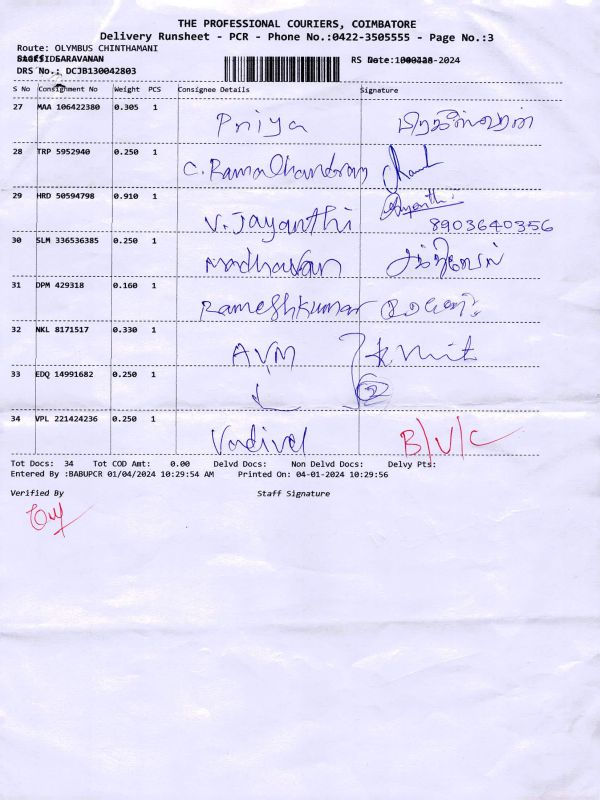 THE PROFESSIONAL COURIERS, COIMBATORE
Delivery Runsheet - PCR - Phone No.:0422-3505555 - Page No.:3
Route: OLYMBUS CHINTHAMANI
SARAVANAN RS Date: -2024
DRS No.: DCJB130042803
S No Consignment No Weight PCS Consignee Details Signature
27 MAA 106422380 0.305 1 Priya
28 TRP 5952940 0.250 1 C. Ramachandran
29 HRD 50594798 0.910 1 V. Jayanthi Jayanthi
8903640356
30 SLM 336536385 0.250 1 Madhavan
31 DPM 429318 0.160 1 Rameshkumar
32 NKL 8171517 0.330 1 AVM
33 EDQ 14991682 0.250 1 2
34 VPL 221424236 0.250 1 Vadivel B/V/C
Tot Docs: 34 Tot COD Amt: 0.00 Delvd Docs: Non Delvd Docs: Delvy Pts:
Entered By :BABUPCR 01/04/2024 10:29:54 AM Printed On: 04-01-2024 10:29:56
Verified By Staff Signature